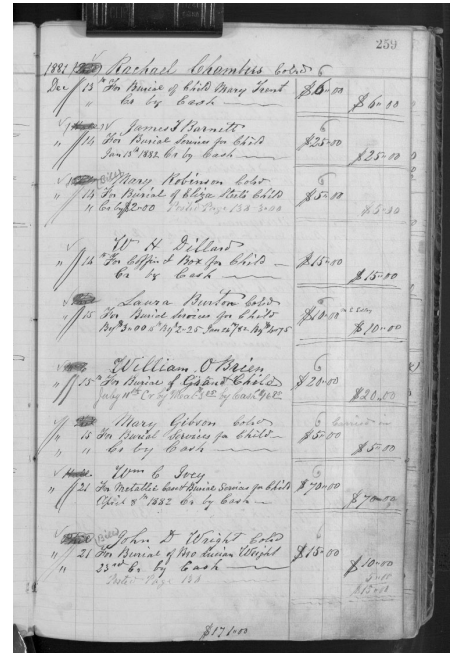 259
1881 Rachael Chambers Colrd 6
Dec 13th For Burial of Child Mary Trent $6.00
Cr by Cash $6.00
James T Barnett 6
14 For Burial Services for Child $25.00
Jan 13th 1882 Cr by Cash $25.00
Bill Mary Robinson Colrd 6
" 14 For Burial of Eliza Child $5.00
" Cr by $2.00 Posted Page 3.00
W H Dillard
" 14th For Coffin & Box for Child $15.00
Cr by Cash $15.00
Laura Burton Colrd 6
" 15 For Burial Services for Child $10.00
By $3.00 By 2.25 Jan 82 By $4.75 $10.00
William O Brien 6
" 15th For Burial of Grand Child $20.00
July Cr by by Cash $20.00
Mary Gibson Colrd 6
" 15 For Burial Services for Child $5.00
" " Cr by Cash $5.00
Wm C Ivey 6
" 21 For Metallic Case & Burial Services for Child $70.00
April 8th 1882 Cr by Cash $70.00
Bill John D Wright Colrd 6
" 21 For Burial of Mrs Lucian Wright $15.00
" 23rd Cr by Cash $10.00
Posted Page 5.00
$15.00
$171.00